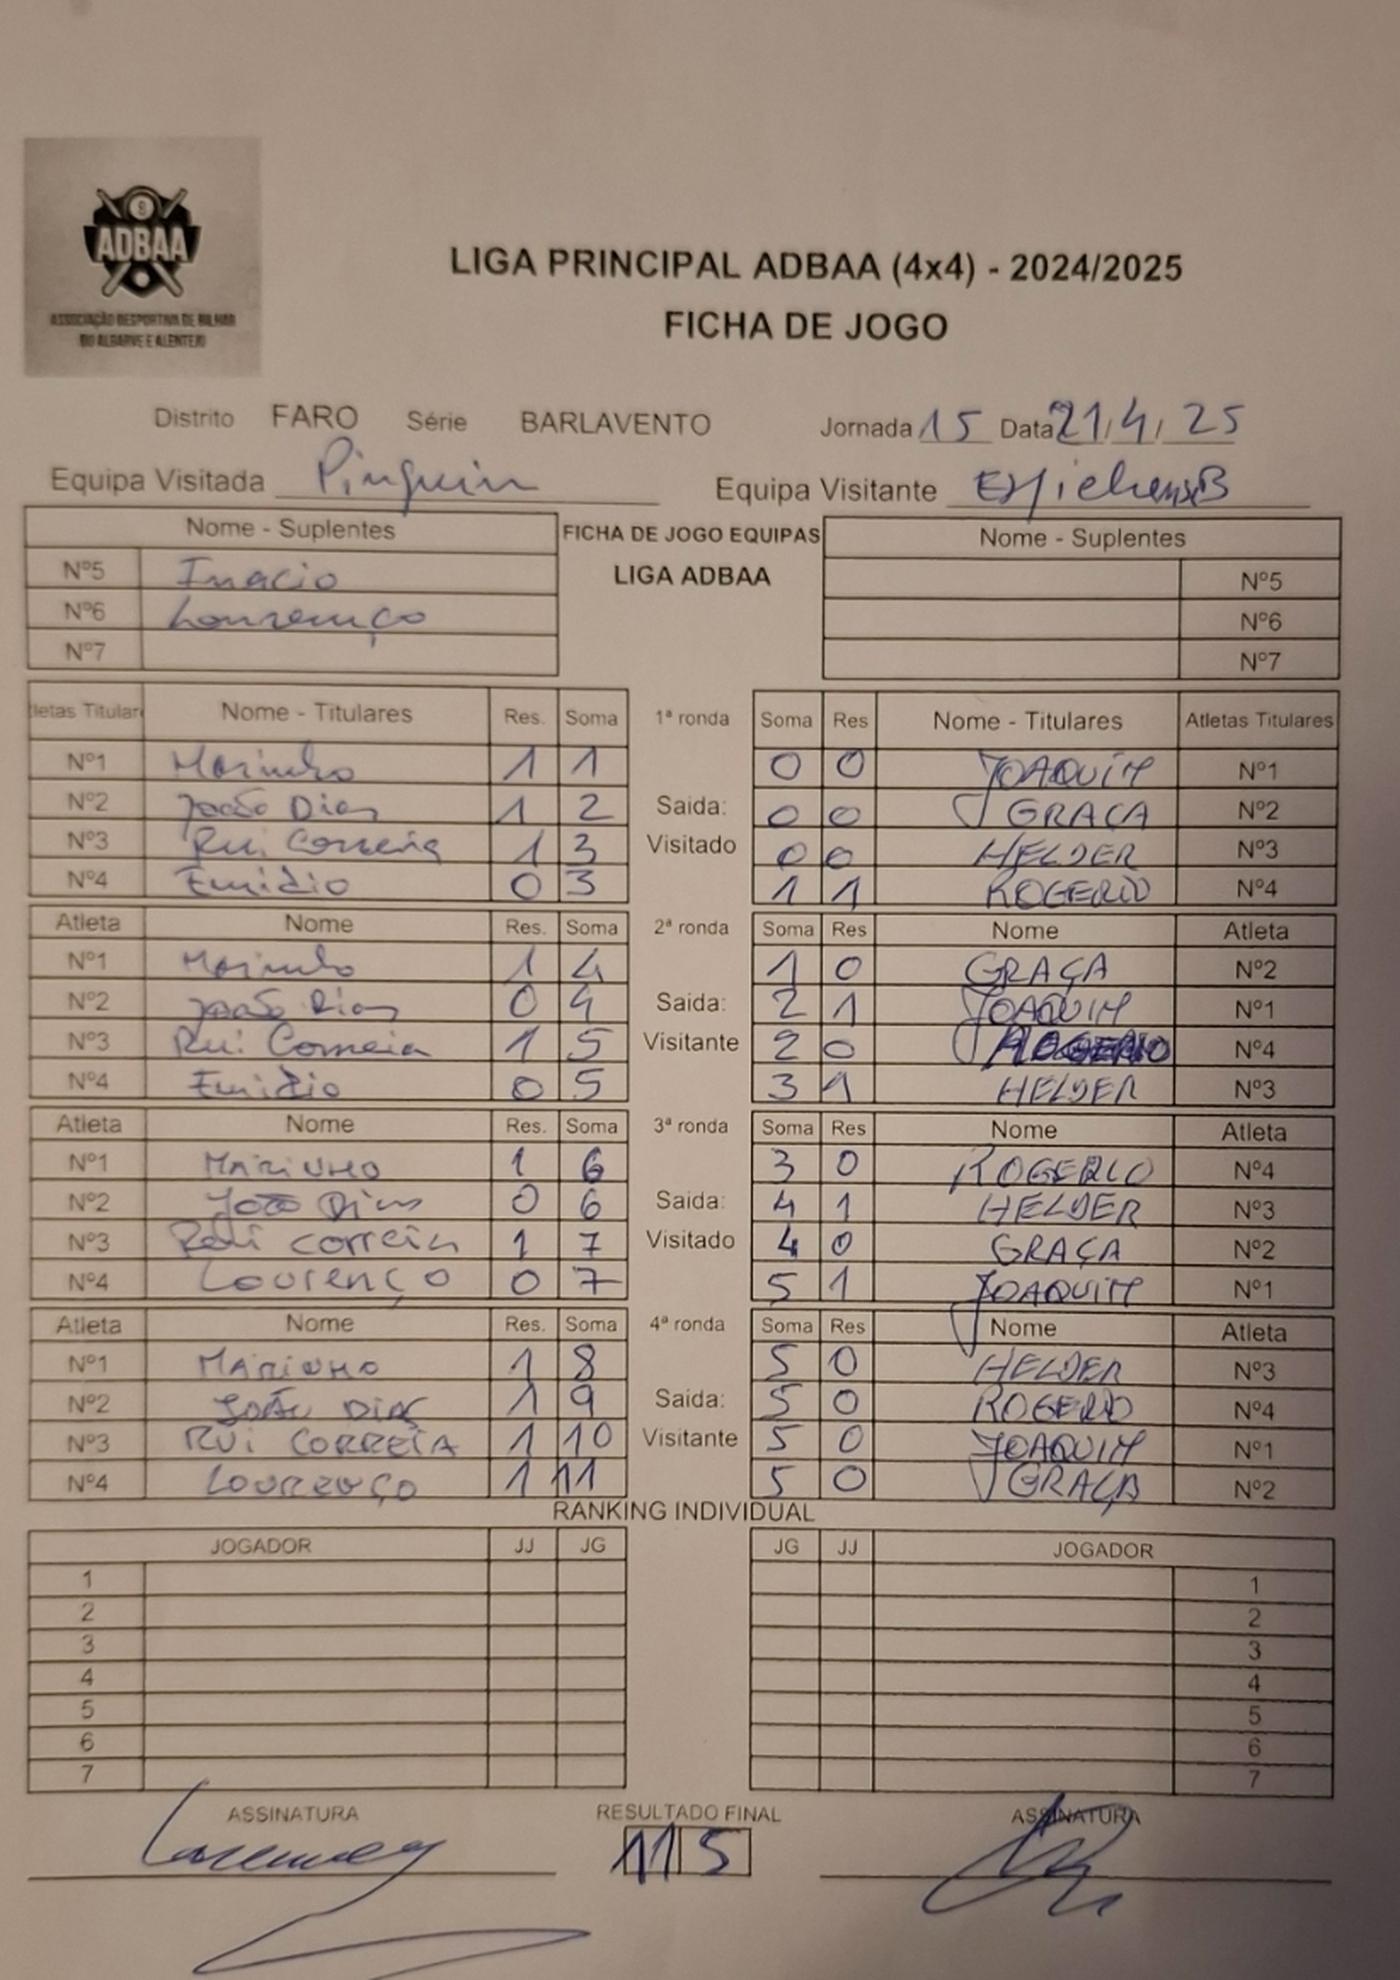 8
ADBAA
ASSOCIAÇÃO DESPORTIVA DE BILHAR
DO ALGARVE E ALENTEJO
LIGA PRINCIPAL ADBAA (4x4) - 2024/2025
FICHA DE JOGO
Distrito FARO Série BARLAVENTO Jornada 15 Data 21/4/25
Equipa Visitada Pinguin Equipa Visitante
Nome - Suplentes FICHA DE JOGO EQUIPAS Nome - Suplentes
Nº5 Inacio LIGA ADBAA Nº5
Nº6 Lourenço Nº6
Nº7 Nº7
letas Titular Nome - Titulares Res. Soma 1ª ronda Soma Res Nome - Titulares Atletas Titulares
Nº1 Marinho 1 1 0 0 JOAQUIM Nº1
Nº2 João Dias 1 2 Saida: 0 0 GRACA Nº2
Nº3 Rui Correia 1 3 Visitado 0 0 HELDER Nº3
Nº4 Emidio 0 3 1 1 ROGERIO Nº4
Atleta Nome Res. Soma 2ª ronda Soma Res Nome Atleta
Nº1 Marinho 1 4 1 0 GRAÇA Nº2
Nº2 João Dias 0 4 Saida: 2 1 JOAQUIM Nº1
Nº3 Rui Correia 1 5 Visitante 2 0 ROGERIO Nº4
Nº4 Emidio 0 5 3 1 HELDER Nº3
Atleta Nome Res. Soma 3ª ronda Soma Res Nome Atleta
Nº1 MARINHO 1 6 3 0 ROGERIO Nº4
Nº2 João Dias 0 6 Saida: 4 1 HELDER Nº3
Nº3 Rui Correia 1 7 Visitado 4 0 GRAÇA Nº2
Nº4 Lourenço 0 7 5 1 JOAQUIM Nº1
Atleta Nome Res. Soma 4ª ronda Soma Res Nome Atleta
Nº1 MARINHO 1 8 5 0 HELDER Nº3
Nº2 JOÃO DIAS 1 9 Saida: 5 0 ROGERIO Nº4
Nº3 RUI CORREIA 1 10 Visitante 5 0 JOAQUIM Nº1
Nº4 LOURENÇO 1 11 5 0 GRAÇA Nº2
RANKING INDIVIDUAL
JOGADOR JJ JG JG JJ JOGADOR
1 1
2 2
3 3
4 4
5 5
6 6
7 7
ASSINATURA RESULTADO FINAL ASSINATURA
11 5